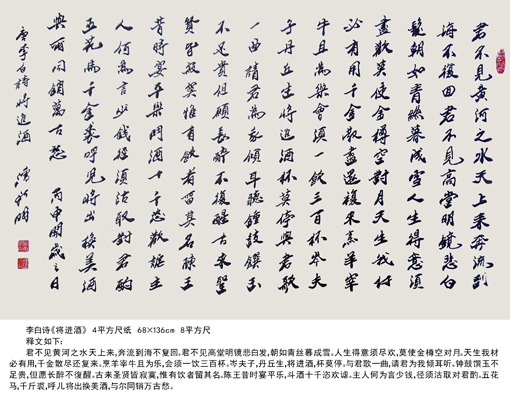 君不見黄河之水天上来奔流到
海不復回君不見高堂明鏡悲白
髮朝如青絲暮成雪人生得意須
盡歡莫使金樽空對月天生我材
必有用千金散盡還復来烹羊宰
牛且為樂會須一飲三百杯岑夫
子丹丘生将進酒杯莫停與君歌
一曲請君為我傾耳聽鐘鼓饌玉
不足貴但願長醉不復醒古来聖
賢皆寂寞惟有飲者留其名陳王
昔時宴平樂鬥酒十千恣歡謔主
人何為言少錢徑須沽取對君酌
五花馬千金裘呼兒将出换美酒
與爾同销萬古愁 丙申開歲之日
唐李白詩将進酒
李白诗《将进酒》 4平方尺纸 68×136cm 8平方尺
释文如下:
君不见黄河之水天上来,奔流到海不复回。君不见高堂明镜悲白发,朝如青丝暮成雪。人生得意须尽欢,莫使金樽空对月。天生我材
必有用,千金散尽还复来。烹羊宰牛且为乐,会须一饮三百杯。岑夫子,丹丘生,将进酒,杯莫停。与君歌一曲,请君为我倾耳听。钟鼓馔玉不
足贵,但愿长醉不复醒。古来圣贤皆寂寞,惟有饮者留其名。陈王昔时宴平乐,斗酒十千恣欢谑。主人何为言少钱,径须沽取对君酌。五花
马,千斤裘,呼儿将出换美酒,与尔同销万古愁。